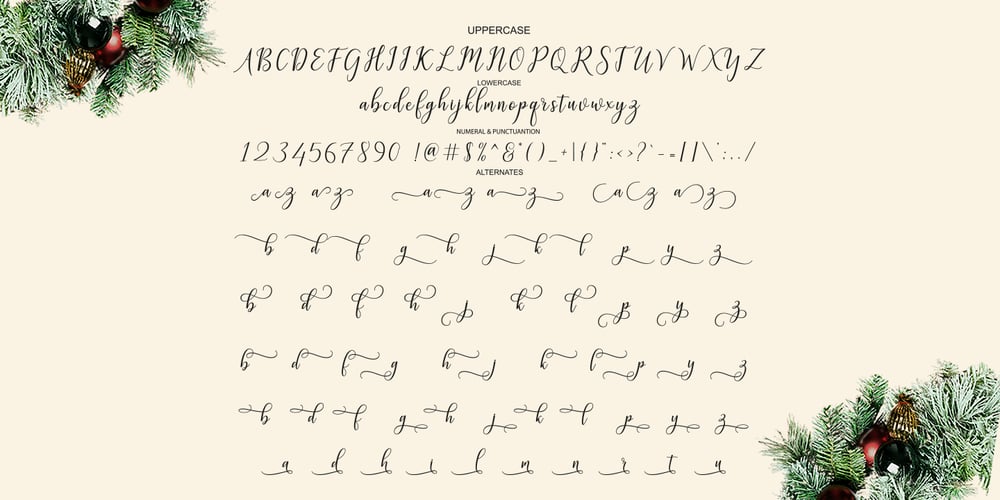 UPPERCASE
ABCDEFGHIJKLMNOPQRSTUVWXYZ
LOWERCASE
abcdefghijklmnopqrstuvwxyz
NUMERAL & PUNCTUANTION
1234567890 !@#$%^&*()_+|{}":<>?`-=[]\';.,/
ALTERNATES
a z a z a z a z a z a z
b d f g h j k l p y z
b d f h j k l p y z
b d f g h j k l p y z
b d f g h j k l p y z
a d h i l m n r t u